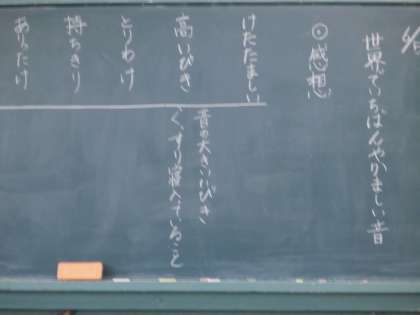 世界でいちばんやかましい音
◎感想
けたたましい
高いびき
音の大きいいびき
ぐっすり寝入っていること
とりわけ
持ちきり
ありったけ